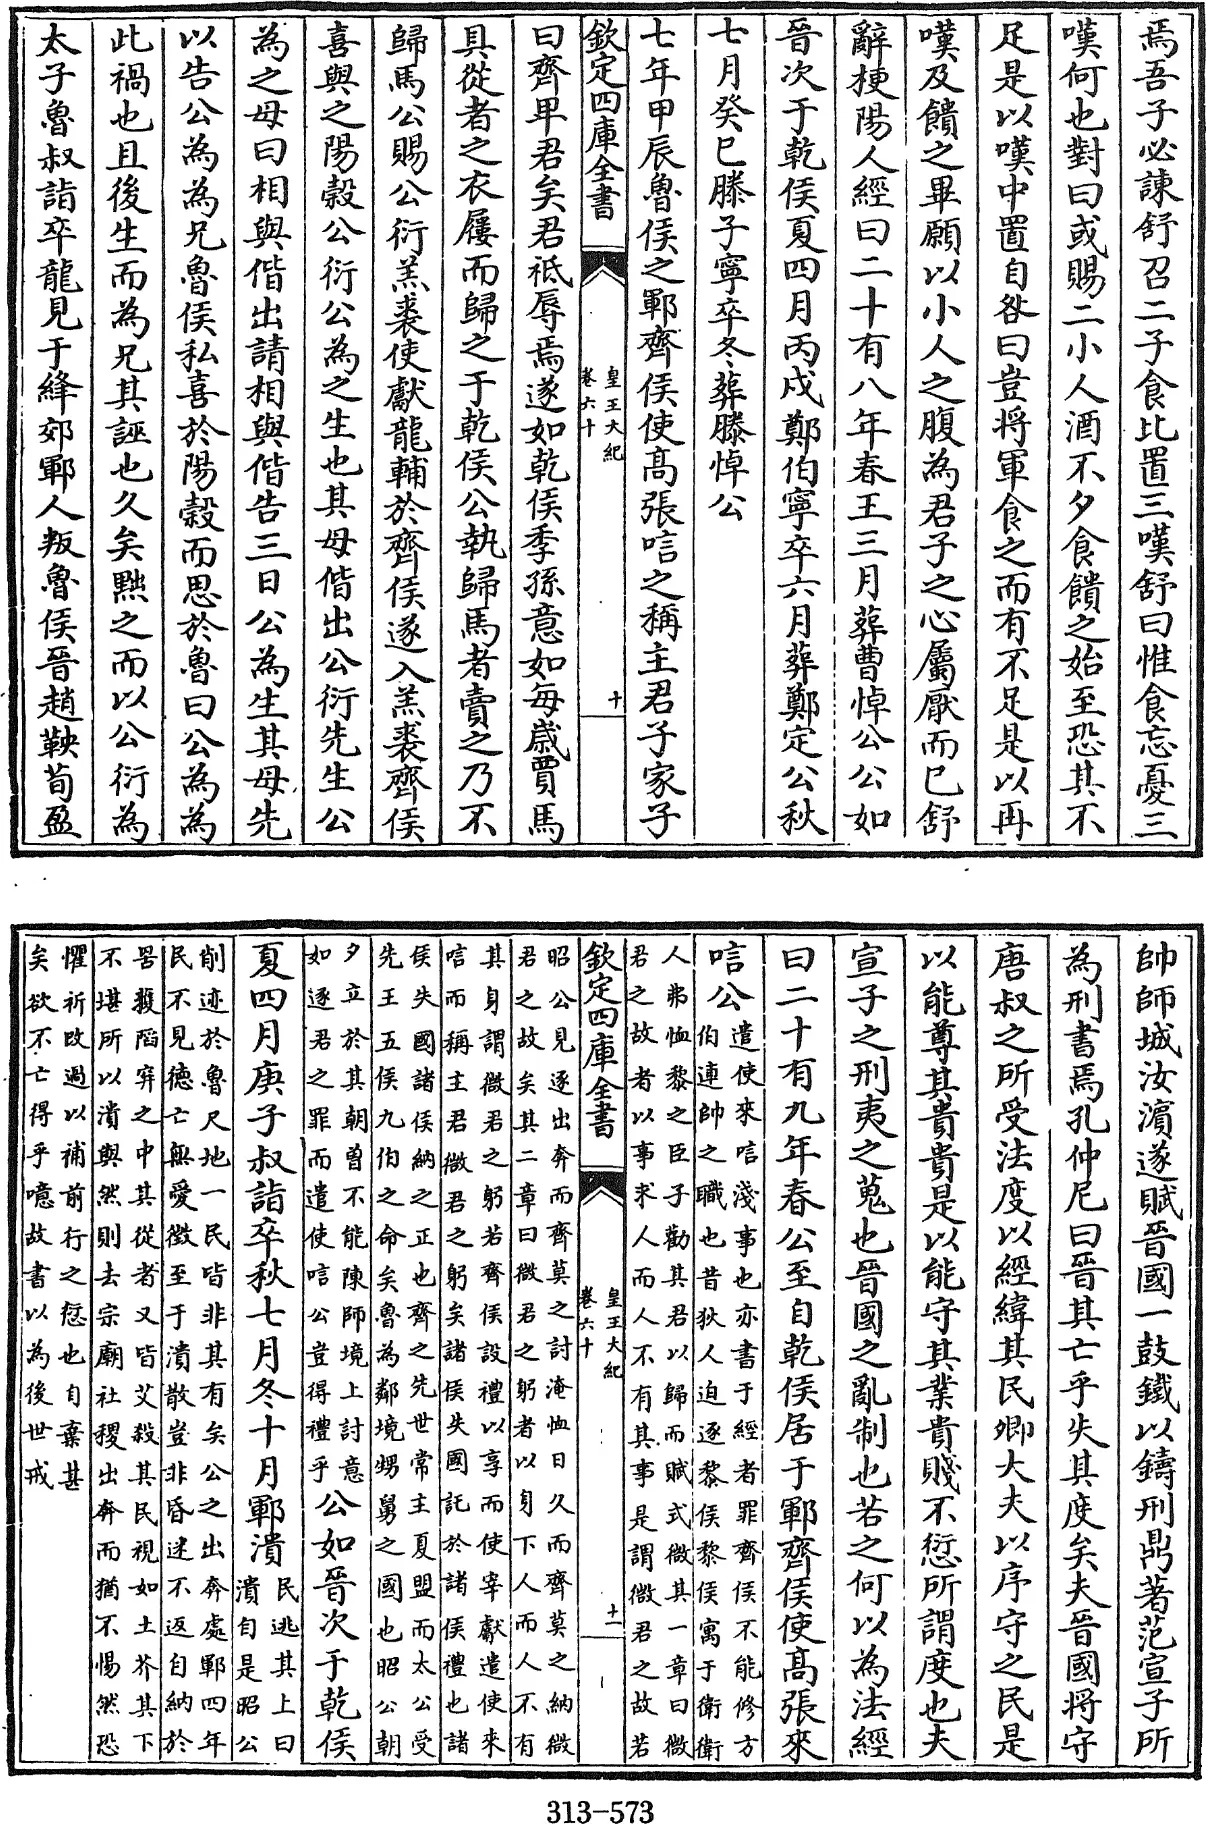 焉吾子必諫舒召二子食比置三嘆舒曰惟食忘憂三
嘆何也對曰或賜二小人酒不夕食饋之始至恐其不
足是以嘆中置自咎曰豈將軍食之而有不足是以再
嘆及饋之畢願以小人之腹為君子之心屬厭而已舒
辭梗陽人經曰二十有八年春王三月葬曹悼公公如
晉次于乾侯夏四月丙戌鄭伯寧卒六月葬鄭定公秋
七月癸巳滕子寧卒冬葬滕悼公
七年甲辰魯侯之鄆齊侯使高張唁之稱主君子家子
欽定四庫全書
皇王大紀
卷六十
十
曰齊卑君矣君祗辱焉遂如乾侯季孫意如每歲買馬
具從者之衣屨而歸之于乾侯公執歸馬者賣之乃不
歸馬公賜公衍羔裘使獻龍輔於齊侯遂入羔裘齊侯
喜與之陽穀公衍公為之生也其母偕出公衍先生公
為之母曰相與偕出請相與偕告三日公為生其母先
以告公為為兄魯侯私喜於陽穀而思於魯曰公為為
此禍也且後生而為兄其誣也久矣黜之而以公衍為
太子魯叔詣卒龍見于絳郊鄆人叛魯侯晉趙鞅荀盈
帥師城汝濵遂賦晉國一鼓鐵以鑄刑鼎著范宣子所
為刑書焉孔仲尼曰晉其亡乎失其度矣夫晉國將守
唐叔之所受法度以經緯其民卿大夫以序守之民是
以能尊其貴貴是以能守其業貴賤不愆所謂度也夫
宣子之刑夷之蒐也晉國之亂制也若之何以為法經
曰二十有九年春公至自乾侯居于鄆齊侯使高張來
唁公遣使來唁淺事也亦書于經者罪齊侯不能修方
伯連帥之職也昔狄人迫逐黎侯黎侯寓于衛衛
人弗恤黎之臣子勸其君以歸而賦式微其一章曰微
君之故者以事求人而人不有其事是謂微君之故若
欽定四庫全書
皇王大紀
卷六十
十一
昭公見逐出奔而齊莫之討淹恤日久而齊莫之納微
君之故矣其二章曰微君之躬者以身下人而人不有
其身謂微君之躬若齊侯設禮以享而使宰獻遣使來
唁而稱主君微君之躬矣諸侯失國託於諸侯禮也諸
侯失國諸侯納之正也齊之先世常主夏盟而太公受
先王五侯九伯之命矣魯為鄰境甥舅之國也昭公朝
夕立於其朝曾不能陳師境上討意
如逐君之罪而遣使唁公豈得禮乎公如晉次于乾侯
夏四月庚子叔詣卒秋七月冬十月鄆潰民逃其上曰
潰自是昭公
削迹於魯尺地一民皆非其有矣公之出奔處鄆四年
民不見德亡無愛徵至于潰散豈非昏迷不返自納於
罟擭陷穽之中其從者又皆艾殺其民視如土芥其下
不堪所以潰與然則去宗廟社稷出奔而猶不惕然恐
懼祈改過以補前行之愆也自棄甚
矣欲不亡得乎噫故書以為後世戒
313-573